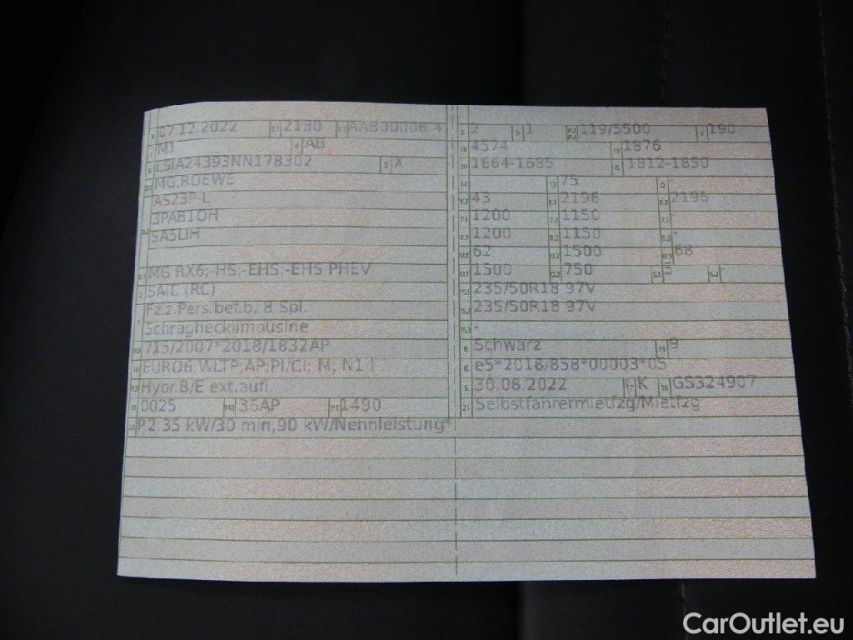 07.12.2022 2180 AAB00006 4
M1 AB
LSJA24393NN178302 X
MG,ROEWE
AS23P-L
3PAB1OH
SA5LIH
MG RX6;-HS;-EHS;-EHS PHEV
SAIC (RC)
Fz.z.Pers.bef.b. 8 Spl.
Schräghecklimousine
715/2007*2018/1832AP
EURO6;WLTP;AP;PI/CI; M, N1 I
Hybr.B/E ext.aufl
0025 36AP 1490
P2.35 kW/30 min,90 kW/Nennleistung*
2 1 119/5500 190
4574 1876
1664-1685 1812-1850
75
43 2196 2196
1200 1150
1200 1150
62 1500 68
1500 750
235/50R18 97V
235/50R18 97V
Schwarz 9
e5*2018/858*00003*05
30.08.2022 K GS324907
Selbstfahrermietfzg/Mietfzg
CarOutlet.eu